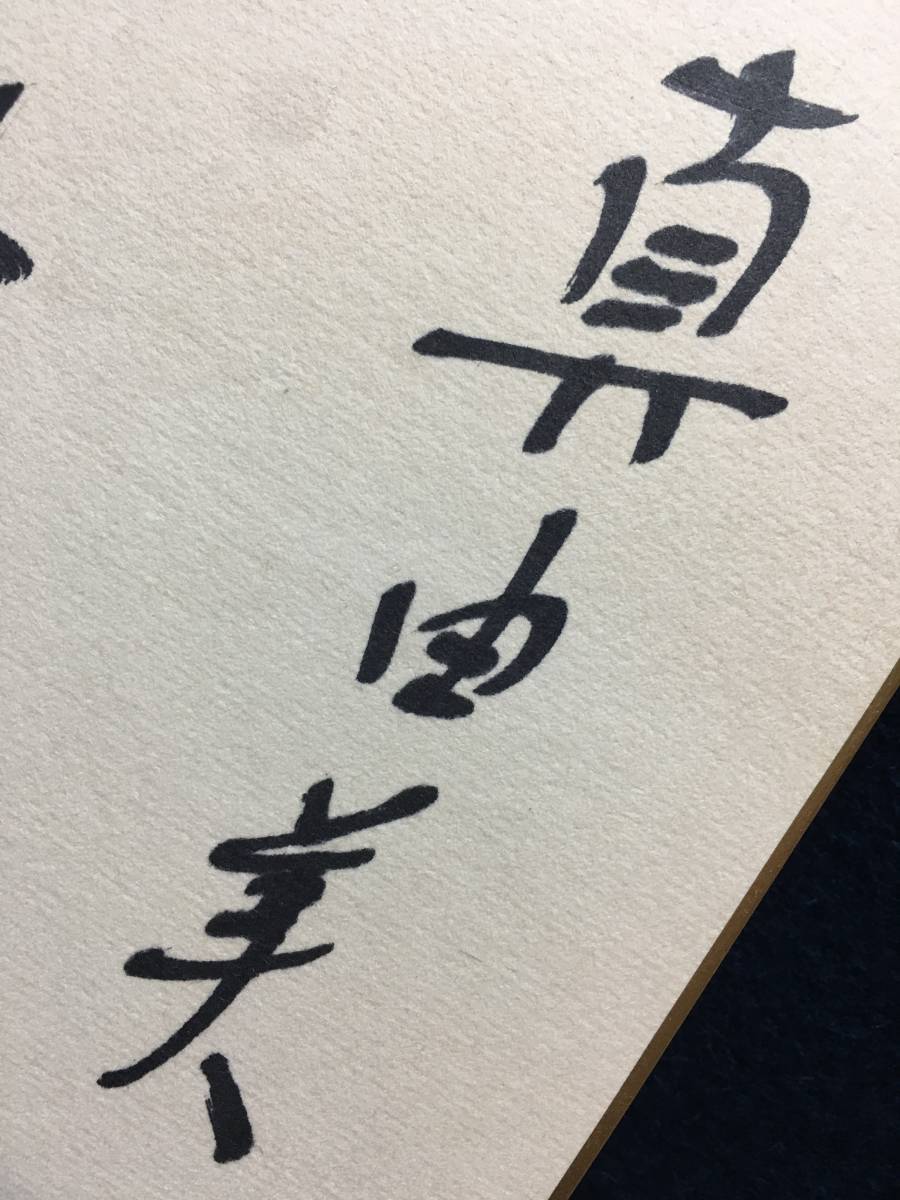 真由美